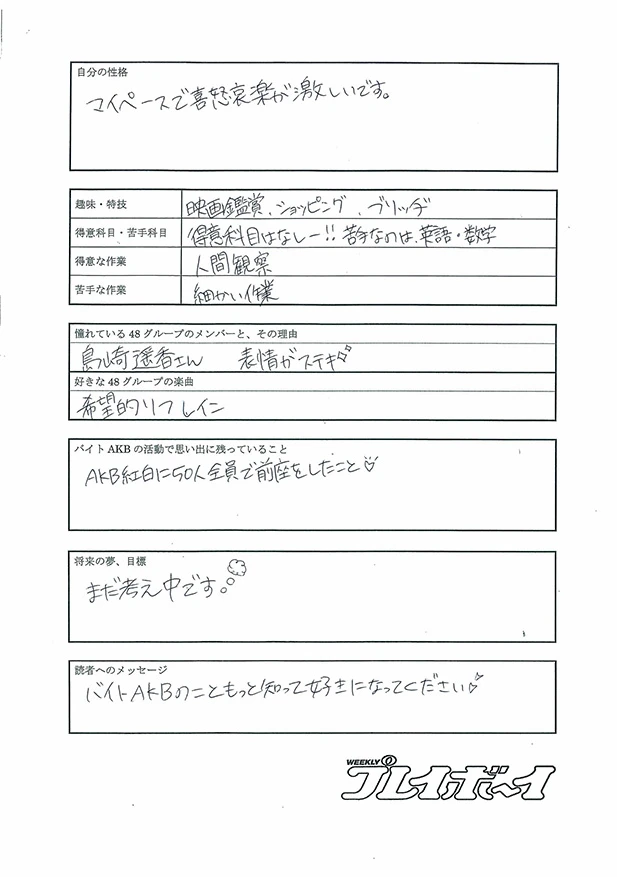 自分の性格
マイペースで喜怒哀楽が激しいです。
趣味・特技
映画鑑賞、ショッピング、ブリッヂ
得意科目・苦手科目
得意科目はなしー!! 苦手なのは、英語・数学
得意な作業
人間観察
苦手な作業
細かい作業
憧れている48グループのメンバーと、その理由
島崎遥香さん 表情がステキ
好きな48グループの楽曲
希望的リフレイン
バイトAKBの活動で思い出に残っていること
AKB紅白に50人全員で前座をしたこと♡
将来の夢、目標
まだ考え中です。
読者へのメッセージ
バイトAKBのこともっと知って好きになってください♡
WEEKLY
プレイボーイ